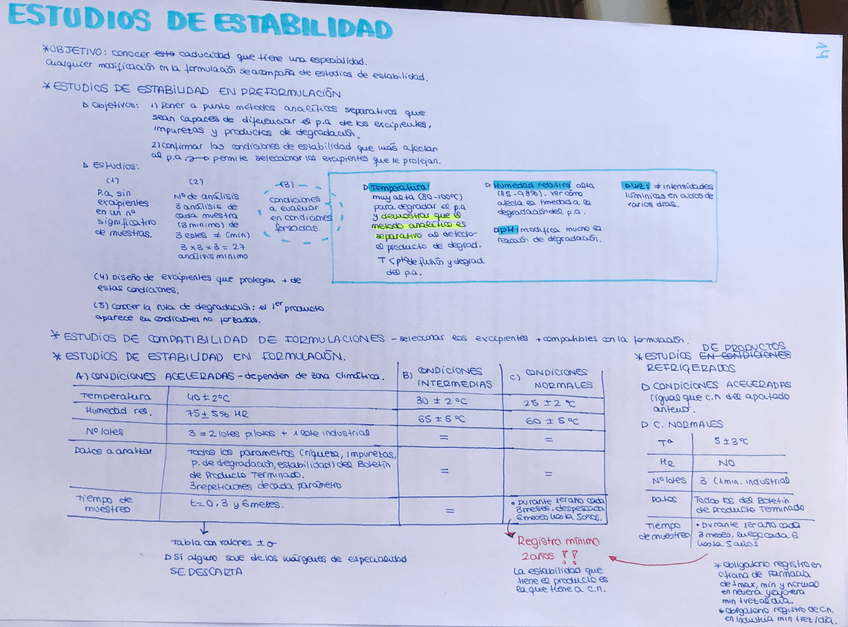 ESTUDIOS DE ESTABILIDAD
14
*OBJETIVO: conocer esto caducidad que tiene una especialidad.
Cualquier modificación en la formulación se acompaña de estudios de estabilidad.
*ESTUDIOS DE ESTABILIDAD EN PREFORMULACIÓN
Objetivos: 1) Poner a punto métodos analíticos separativos que
sean capaces de diferenciar el p.a de los excipientes,
impurezas y productos de degradación.
2) confirmar las condiciones de estabilidad que más afectan
al p.a → permite seleccionar los excipientes que le protejan.
Estudios:
(1)
P.a sin
excipientes
en un nº
significativo
de muestras.
(2)
Nº de análisis
3 análisis de
cada muestra
(3 mínimo) de
3 lotes ≠ (min)
3 x 3 x 3 = 27
análisis mínimo
(3)
condiciones
a evaluar
en condiciones
forzadas
Temperatura
muy alta (80-100ºC)
para degradar el p.a
y demostrar que el
método analítico es
separativo al detectar
el producto de degrad.
T < pto de fusión y degrad.
del p.a.
Humedad relativa alta
(85-98%). ver cómo
afecta la humedad a la
degradación del p.a.
pH: modifica mucho la
reacción de degradación.
Luz: ≠ intensidades
lumínicas en ciclos de
varios días.
(4) Diseño de excipientes que protegen + de
estas condiciones.
(5) conocer la ruta de degradación: el 1er producto
aparece en condiciones no forzadas.
* ESTUDIOS DE COMPATIBILIDAD DE FORMULACIONES - seleccionar los excipientes + compatibles con la formulación.
* ESTUDIOS DE ESTABILIDAD EN FORMULACIÓN.
A) CONDICIONES ACELERADAS - dependen de zona climática.
B) CONDICIONES
INTERMEDIAS
C) CONDICIONES
NORMALES
Temperatura 40 ± 2ºC 30 ± 2ºC 25 ± 2ºC
Humedad rel. 75 ± 5% HR 65 ± 5ºC 60 ± 5ºC
Nº lotes 3 = 2 lotes pilotos + 1 lote industrial = =
Datos a analizar Todos los parámetros (riqueza, impurezas,
p. de degradación, estabilidad) del Boletín
de Producto Terminado. = =
3 repeticiones de cada parámetro
Tiempo de
muestreo t = 0, 3 y 6 meses. =
• Durante 1er año cada
3 meses, después cada
6 meses hasta 5 años.
Tabla con valores ± σ
Si alguno sale de los márgenes de especialidad
SE DESCARTA
Registro mínimo
2 años !!
La estabilidad que
tiene el producto es
la que tiene a c.n.
DE PRODUCTOS
* ESTUDIOS EN CONDICIONES
REFRIGERADOS
CONDICIONES ACELERADAS
(igual que c.n del apartado
anterior.
C. NORMALES
Tª 5 ± 3ºC
HR NO
Nº lotes 3 (1 min. industrial
Datos Todos los del Boletín
de Producto Terminado
Tiempo
de muestreo
• Durante 1er año cada
3 meses, luego cada 6
hasta 5 años
* Obligatorio registro en
oficina de Farmacia
de tmax, min y normal
en nevera
min 1 vez al día.
* Obligatorio registro de c.n.
en industria min 1 vez/día.